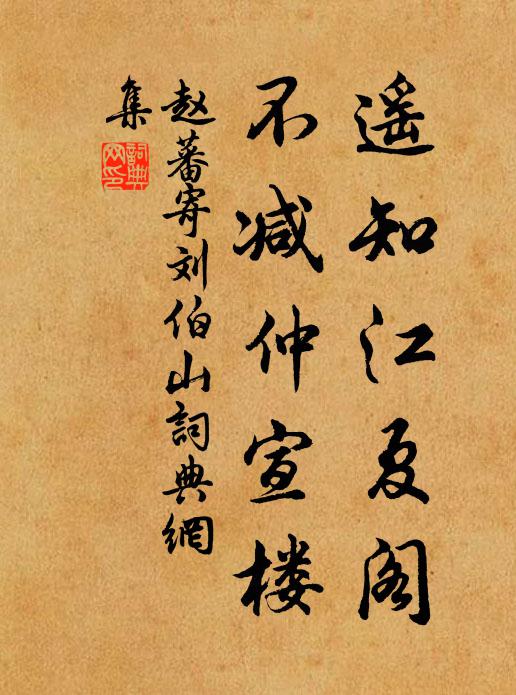 遥知江夏阁
不减仲宣楼
赵蕃寄刘伯山詞典網
集
詞典網印